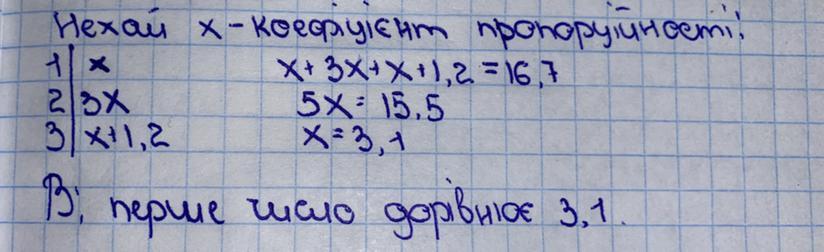 Нехай х - коефіцієнт пропорційності:
1 | х х + 3х + х + 1,2 = 16,7
2 | 3х 5х = 15,5
3 | х+1,2 х = 3,1
В: перше число дорівнює 3,1.